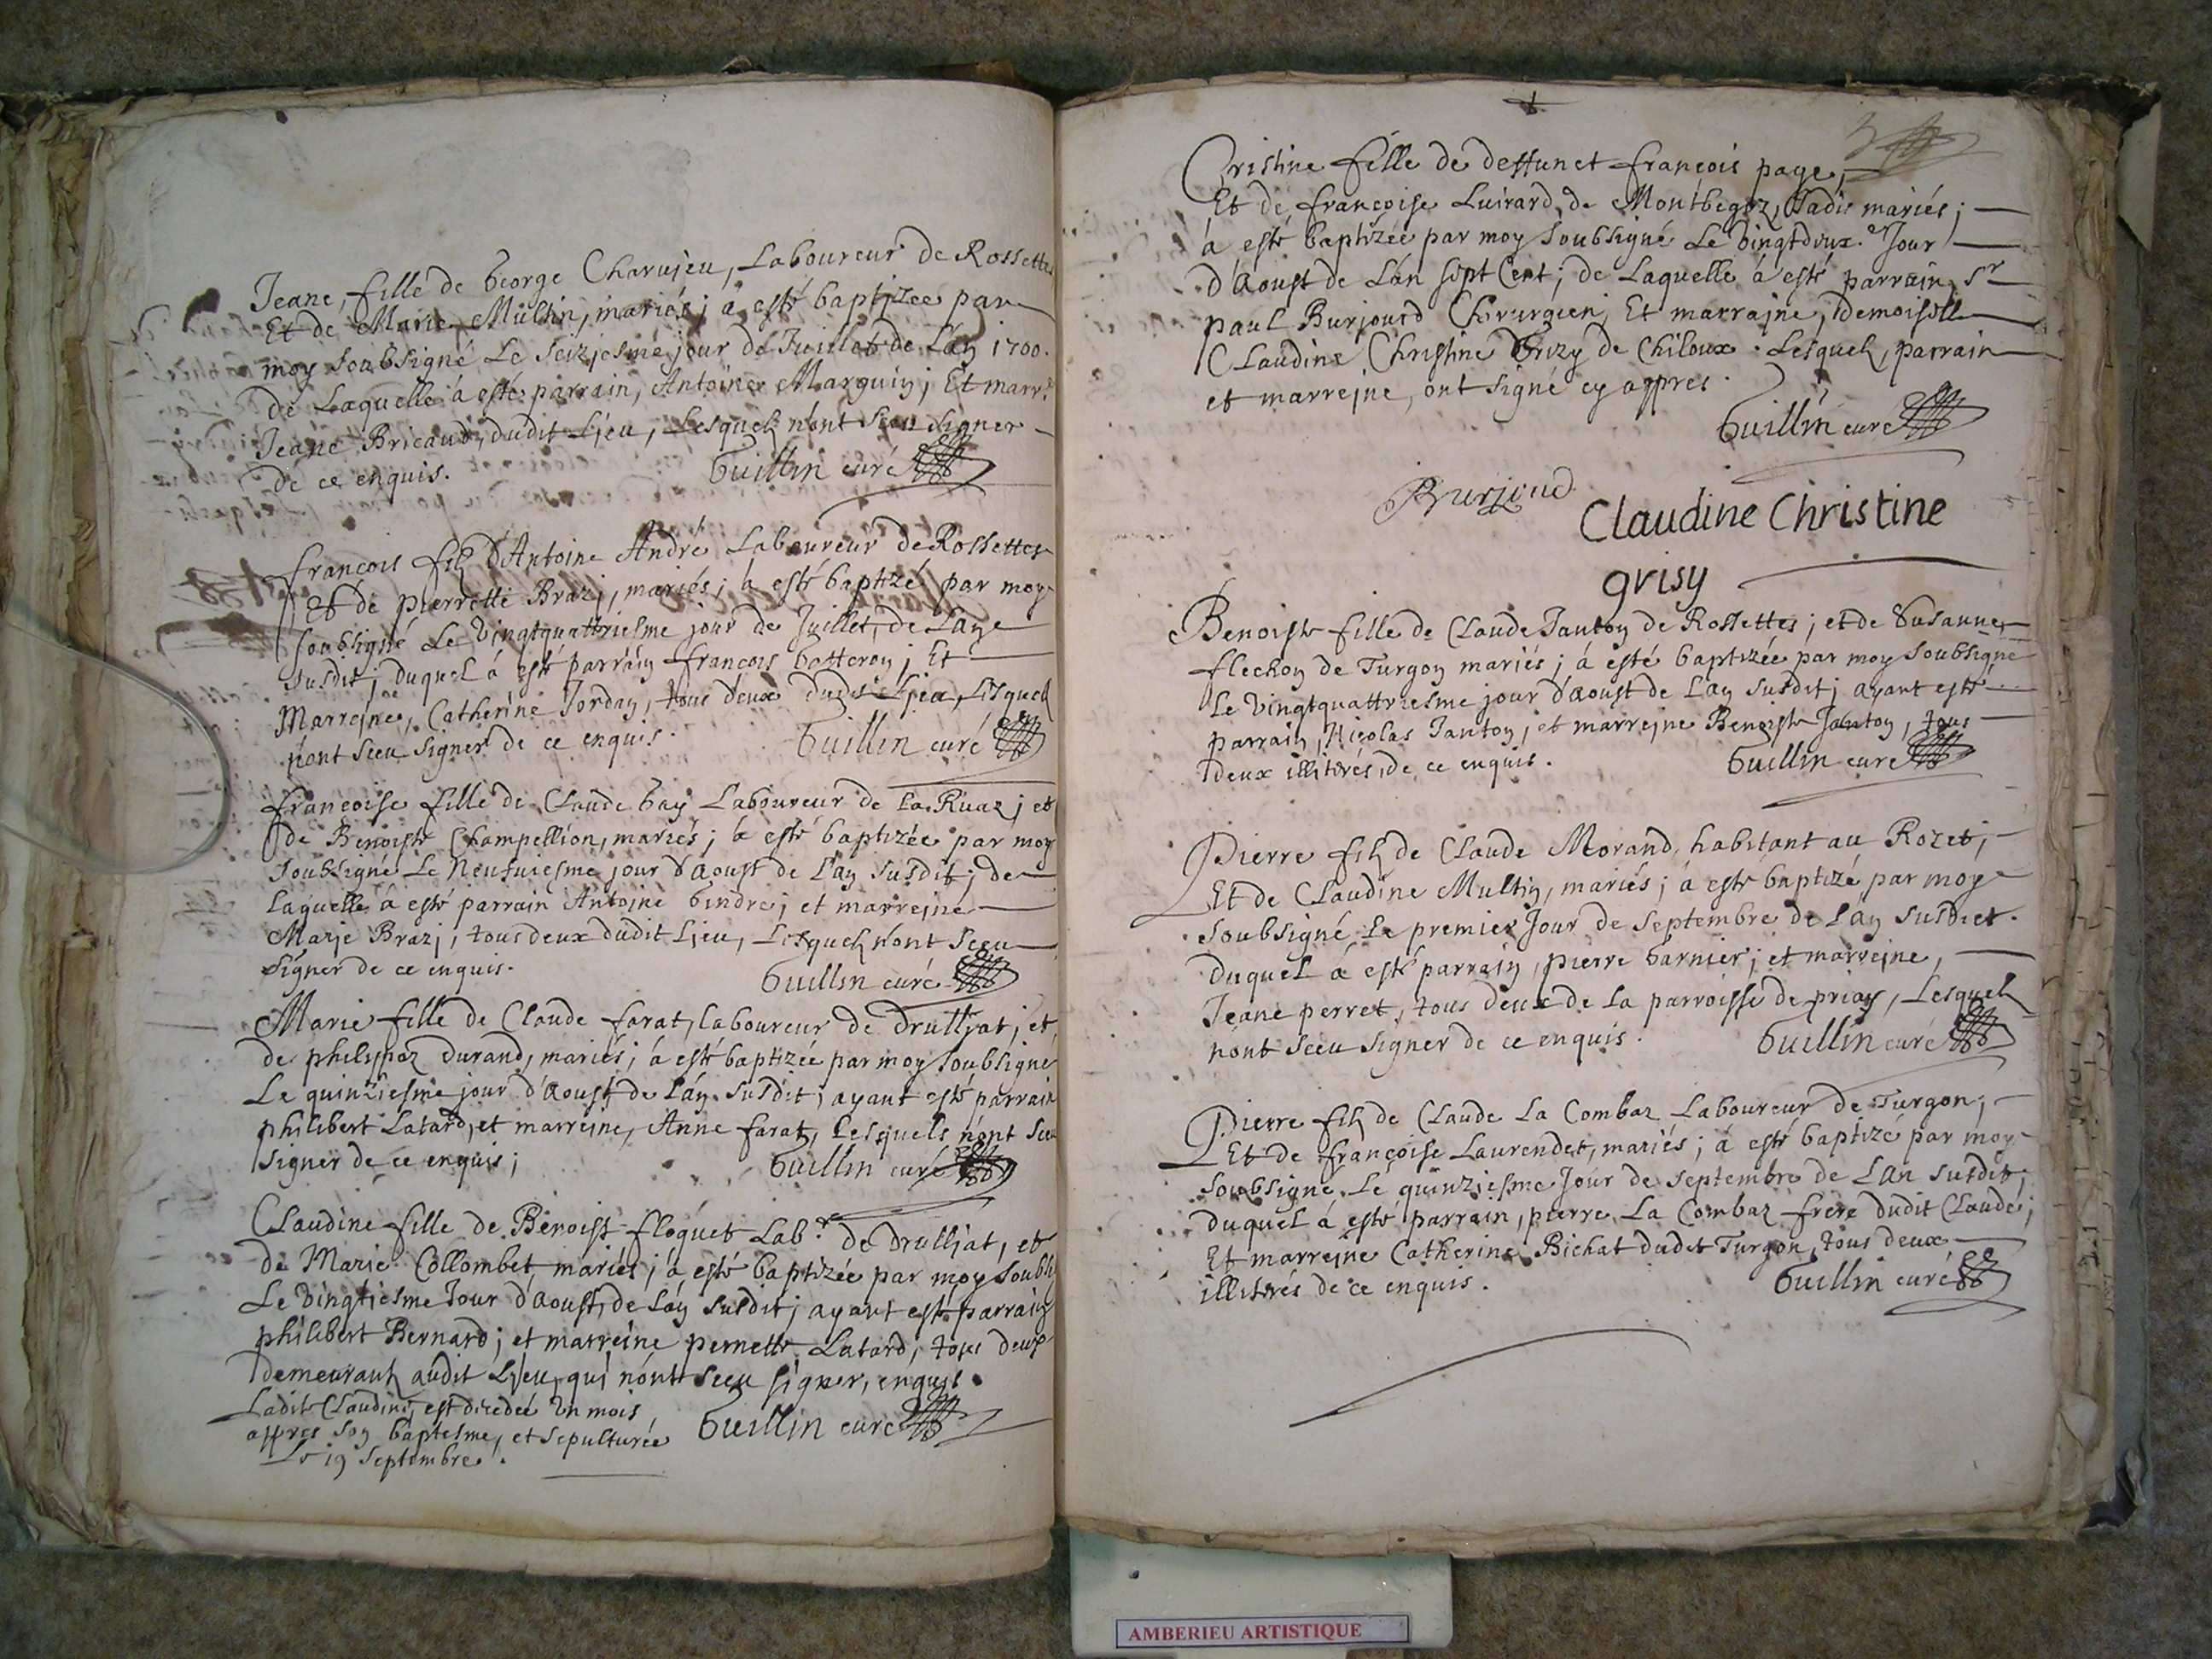 Jeane, fille de George Charujeu, Laboureur de Rossettes
Et de Marie Multin, mariés; a esté baptizee par
moy soubsigné Le seiziesme jour de Juillet de Lan 1700.
de Laquelle à esté parrain, Antoine Marguin; Et marr.e
Jeane Bricaud, dudit Lieu, Lesquels nont sceu signer
de ce enquis. Guillin curé
François fils d'Antoine André Laboureur de Rossettes
Et de pierrette Brazi, mariés; a esté baptizé par moy
soubsigné Le vingtquattriesme jour de Juillet, de Lan
susdit; duquel á esté parrain françois Gotteron; Et
Marreine, Catherine Jordan, tous deux dudit Lieu, Lesquels
nont sceu signer de ce enquis. Guillin curé
françoise fille de Claude Gay Laboureur de La Ruaz; et
de Benoiste Champellion, mariés; à esté baptizée par moy
Soubsigné Le Neufuiesme jour d'aoust de L'an susdit; de
Laquelle à esté parrain Antoine Gindre; et marreine
Marie Brazi, tous deux dudit Lieu, Lesquels nont sceu
signer de ce enquis. Guillin curé
Marie fille de Claude farat, laboureur de Drulliat; et
de philippaz Durand, mariés; á esté baptizée par moy soubsigné
Le quinziesme jour d'aoust de L'an susdit; ayant esté parrain
philibert Latard, et marreine, Anne farat, Lesquels nont sceu
signer de ce enquis; Guillin curé
Claudine fille de Benoist floquet Lab.r de Drulliat, et
de Marie Collombet mariés; á esté baptizée par moy soubs
Le vingtiesme Jour d'aoust, de Lan susdit; ayant esté parrain
philibert Bernard; et marreine pernette Latard, tous deux
demeurants audit Lieu, qui nont sceu signer, enquis.
Ladite Claudine, est décedée un mois
appres son baptesme, et sepulturée Guillin curé
Le 19 septembre.
Cristine fille de deffunct françois page,
Et de françoise Luirard, de Montbegoz, Jadis mariés;
à esté baptizée par moy soubsigné Le vingtdeux.e Jour
d'Aoust de Lán sept Cent; de Laquelle à esté parrain, Sr
paul Burjoud Chirurgien; Et marraine, Demoiselle
Claudine Christine Grizy de Chiloux. Lesquels, parrain
et marreine, ont signé cy appres.
Guillin curé
Burjoud
Claudine Christine
grisy
Benoiste fille de Claude Janton de Rossettes; et de Susanne
flechon de Turgon mariés; à esté baptizée par moy soubsigné
Le vingtquattriesme jour d'aoust de Lan susdit; ayant esté
parrain, Nicolas Janton, et marreine Benoiste Janton, tous
deux illiterés, de ce enquis. Guillin curé
Pierre fils de Claude Morand, habitant au Rozet;
Et de Claudine Multin, mariés; á esté baptizé par moy
soubsigné Le premier Jour de septembre de Lan susdict.
duquel á esté parrain, pierre Garnier; et marreine,
Jeane perret, tous deux de la parroisse de priay, Lesquels
nont sceu signer de ce enquis. Guillin curé
Pierre fils de Claude La Combaz Laboureur de Turgon;
Et de françoise Laurendet, mariés; á esté baptizé par moy
soubsigné, Le quinziesme Jour de septembre de Lan susdit,
duquel á esté parrain, pierre La Combaz frere dudit Claude;
Et marreine Catherine Bichat dudit Turgon, tous deux
illiterés de ce enquis. Guillin curé
AMBERIEU ARTISTIQUE